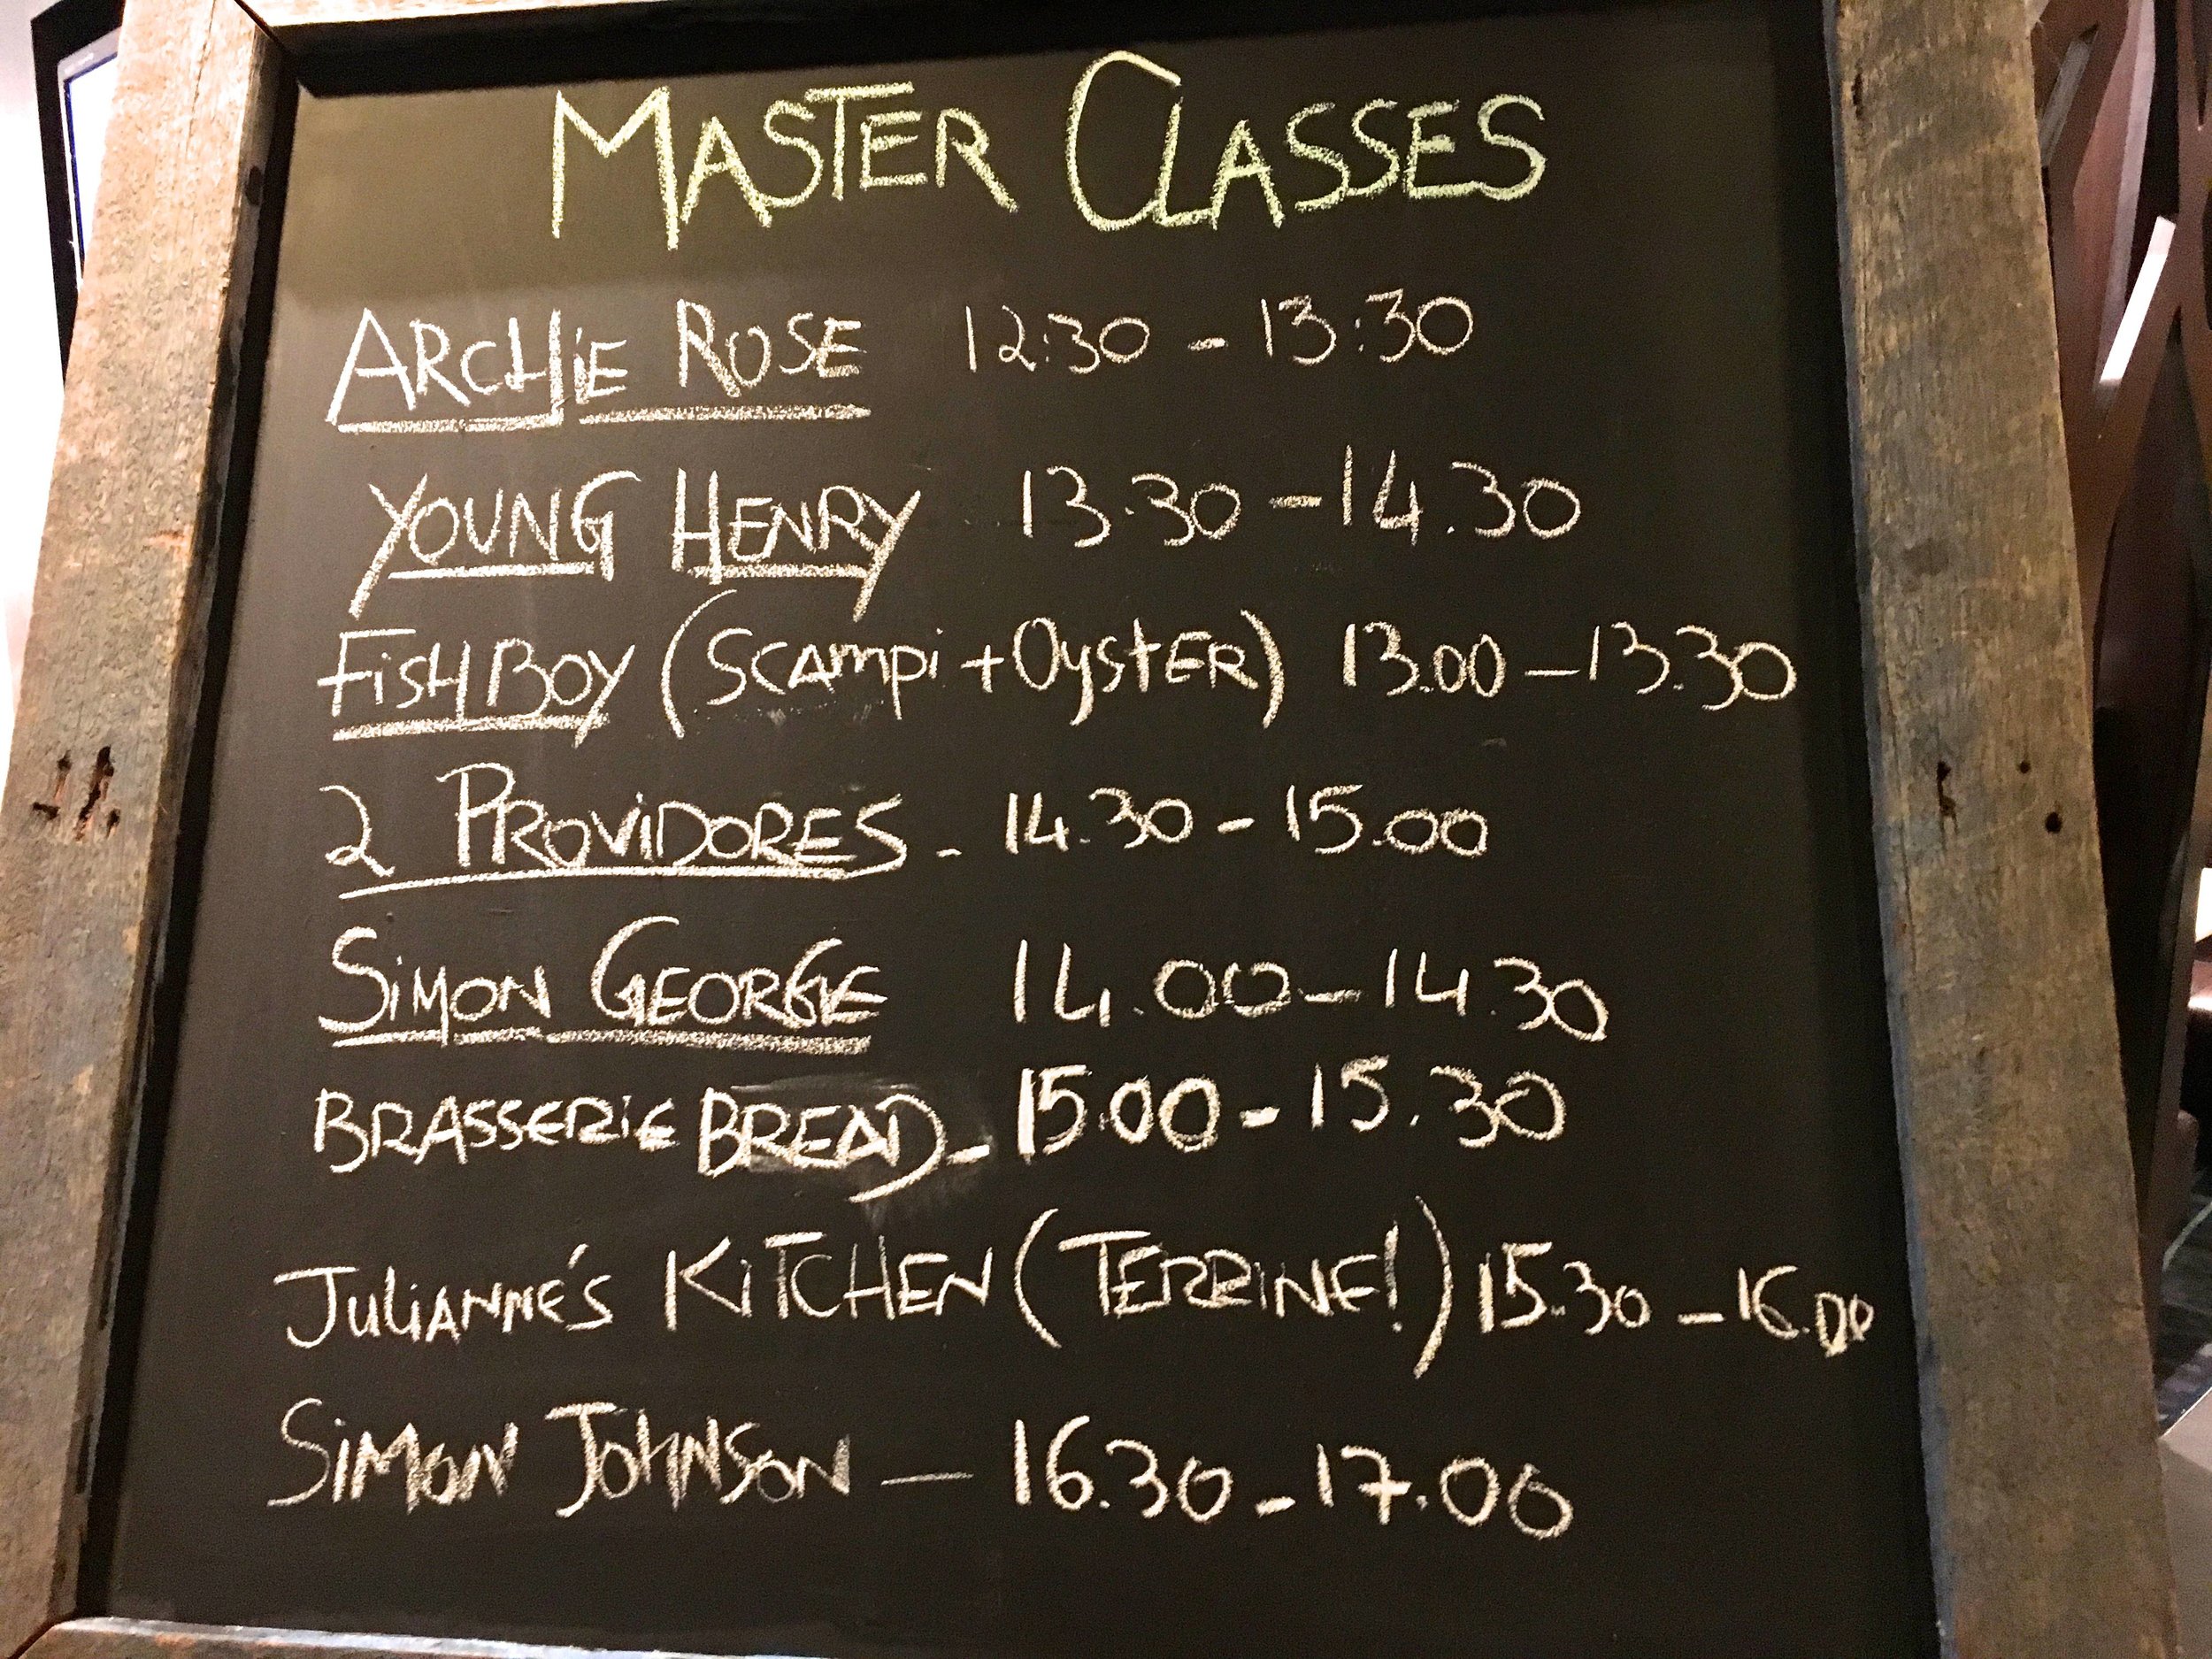 MASTER CLASSES
ARCHiE ROSE 12:30 - 13:30
YOUNG HENRY 13.30 - 14.30
FiSH BOY (SCAmpi + OysTER) 13.00 - 13.30
2 PROViDORES - 14.30 - 15.00
SiMON GEORGE 14.00 - 14.30
BRASSERiE BREAD - 15.00 - 15.30
JuLiANNE'S KiTCHEN (TERRINE!) 15.30 - 16.00
SiMON JOHNSON - 16.30 - 17.00